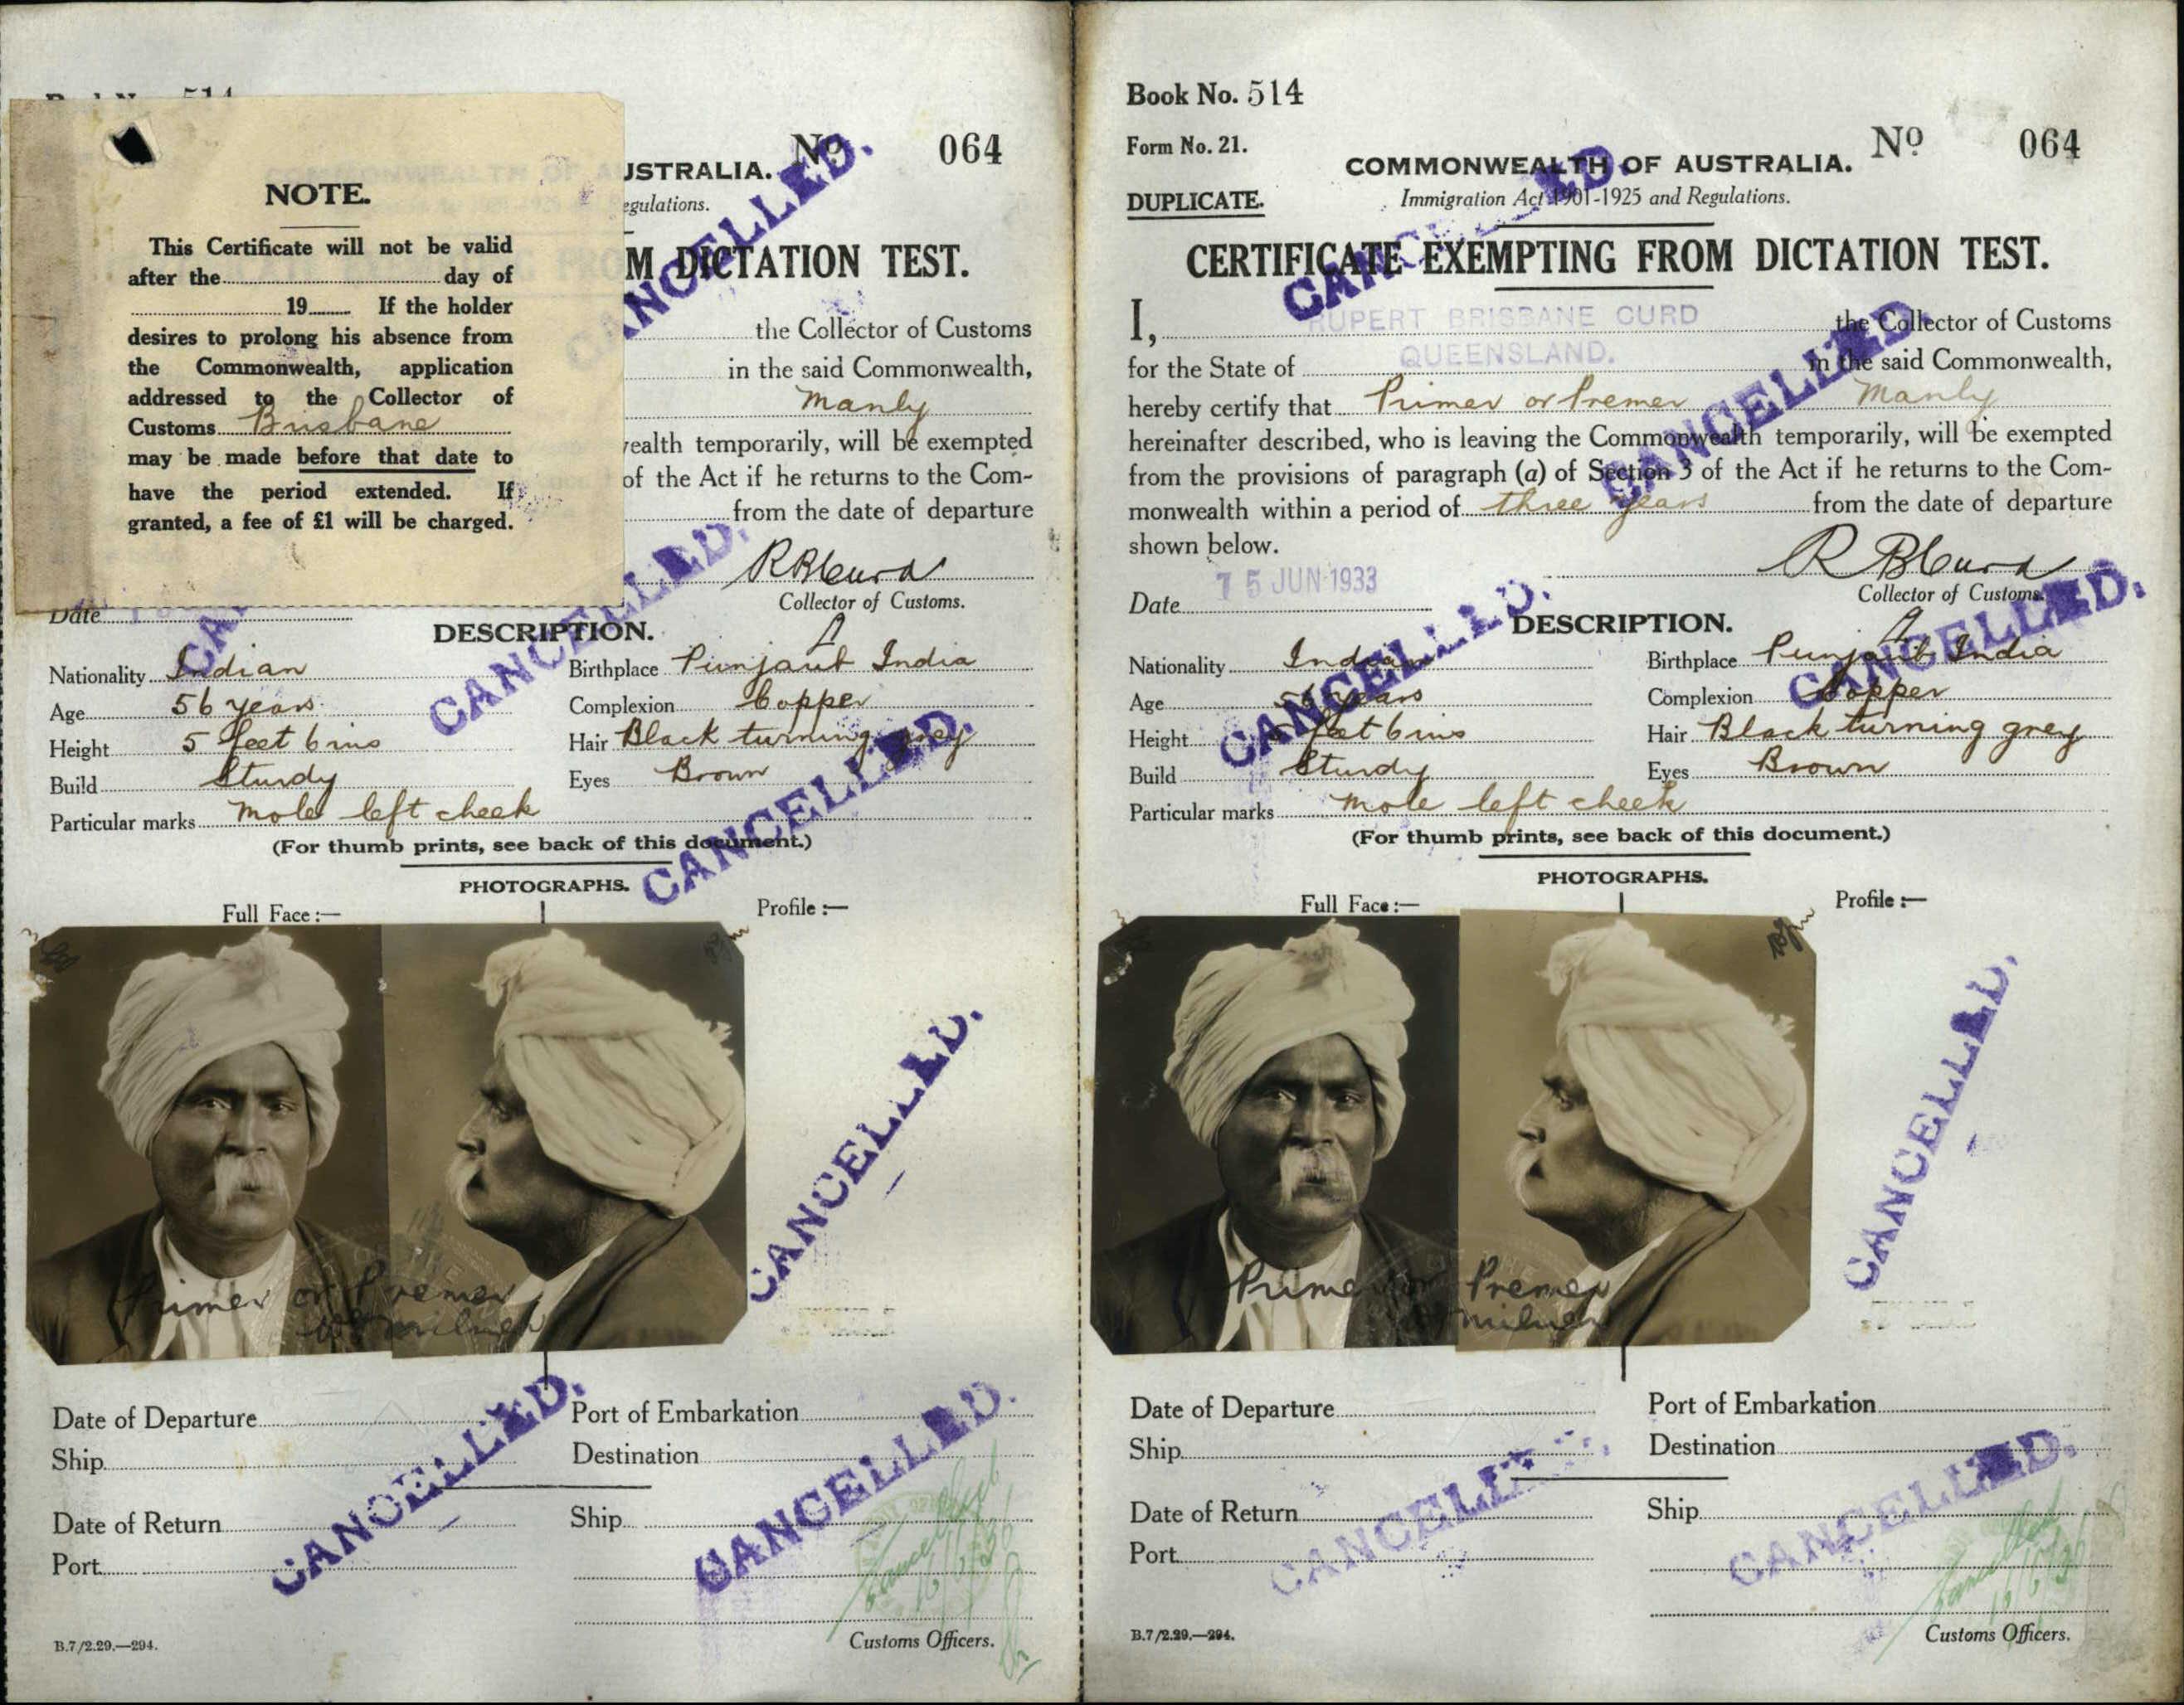 NOTE.
This Certificate will not be valid
after the day of
19 If the holder
desires to prolong his absence from
the Commonwealth, application
addressed to the Collector of
Customs Brisbane
may be made before that date to
have the period extended. If
granted, a fee of £1 will be charged.
514
No 064
USTRALIA.
egulations.
M DICTATION TEST.
the Collector of Customs
in the said Commonwealth,
Manly
wealth temporarily, will be exempted
of the Act if he returns to the Com-
from the date of departure
R B Curd
Collector of Customs.
Date
DESCRIPTION.
Nationality Indian Birthplace Punjaub India
Age 56 years Complexion Copper
Height 5 feet 6 ins Hair Black turning grey
Build Sturdy Eyes Brown
Particular marks Mole left cheek
(For thumb prints, see back of this document.)
PHOTOGRAPHS.
Full Face:— Profile:—
Primer or Premer
Date of Departure Port of Embarkation
Ship Destination
Date of Return Ship
Port
B.7/2.29.—294. Customs Officers.
CANCELLED.
CANCELLED.
CANCELLED.
CANCELLED.
CANCELLED.
CANCELLED.
Book No. 514
Form No. 21. No 064
COMMONWEALTH OF AUSTRALIA.
DUPLICATE. Immigration Act 1901-1925 and Regulations.
CERTIFICATE EXEMPTING FROM DICTATION TEST.
I, RUPERT BRISBANE CURD the Collector of Customs
for the State of QUEENSLAND. in the said Commonwealth,
hereby certify that Primer or Premer Manly
hereinafter described, who is leaving the Commonwealth temporarily, will be exempted
from the provisions of paragraph (a) of Section 3 of the Act if he returns to the Com-
monwealth within a period of three years from the date of departure
shown below.
R B Curd
Date 15 JUN 1933 Collector of Customs.
DESCRIPTION.
Nationality Indian Birthplace Punjaub India
Age 56 years Complexion Copper
Height 5 feet 6 ins Hair Black turning grey
Build Sturdy Eyes Brown
Particular marks Mole left cheek
(For thumb prints, see back of this document.)
PHOTOGRAPHS.
Full Face:— Profile:—
Primer or Premer
Date of Departure Port of Embarkation
Ship Destination
Date of Return Ship
Port
B.7/2.29.—294. Customs Officers.
CANCELLED.
CANCELLED.
CANCELLED.
CANCELLED.
CANCELLED.
CANCELLED.
CANCELLED.